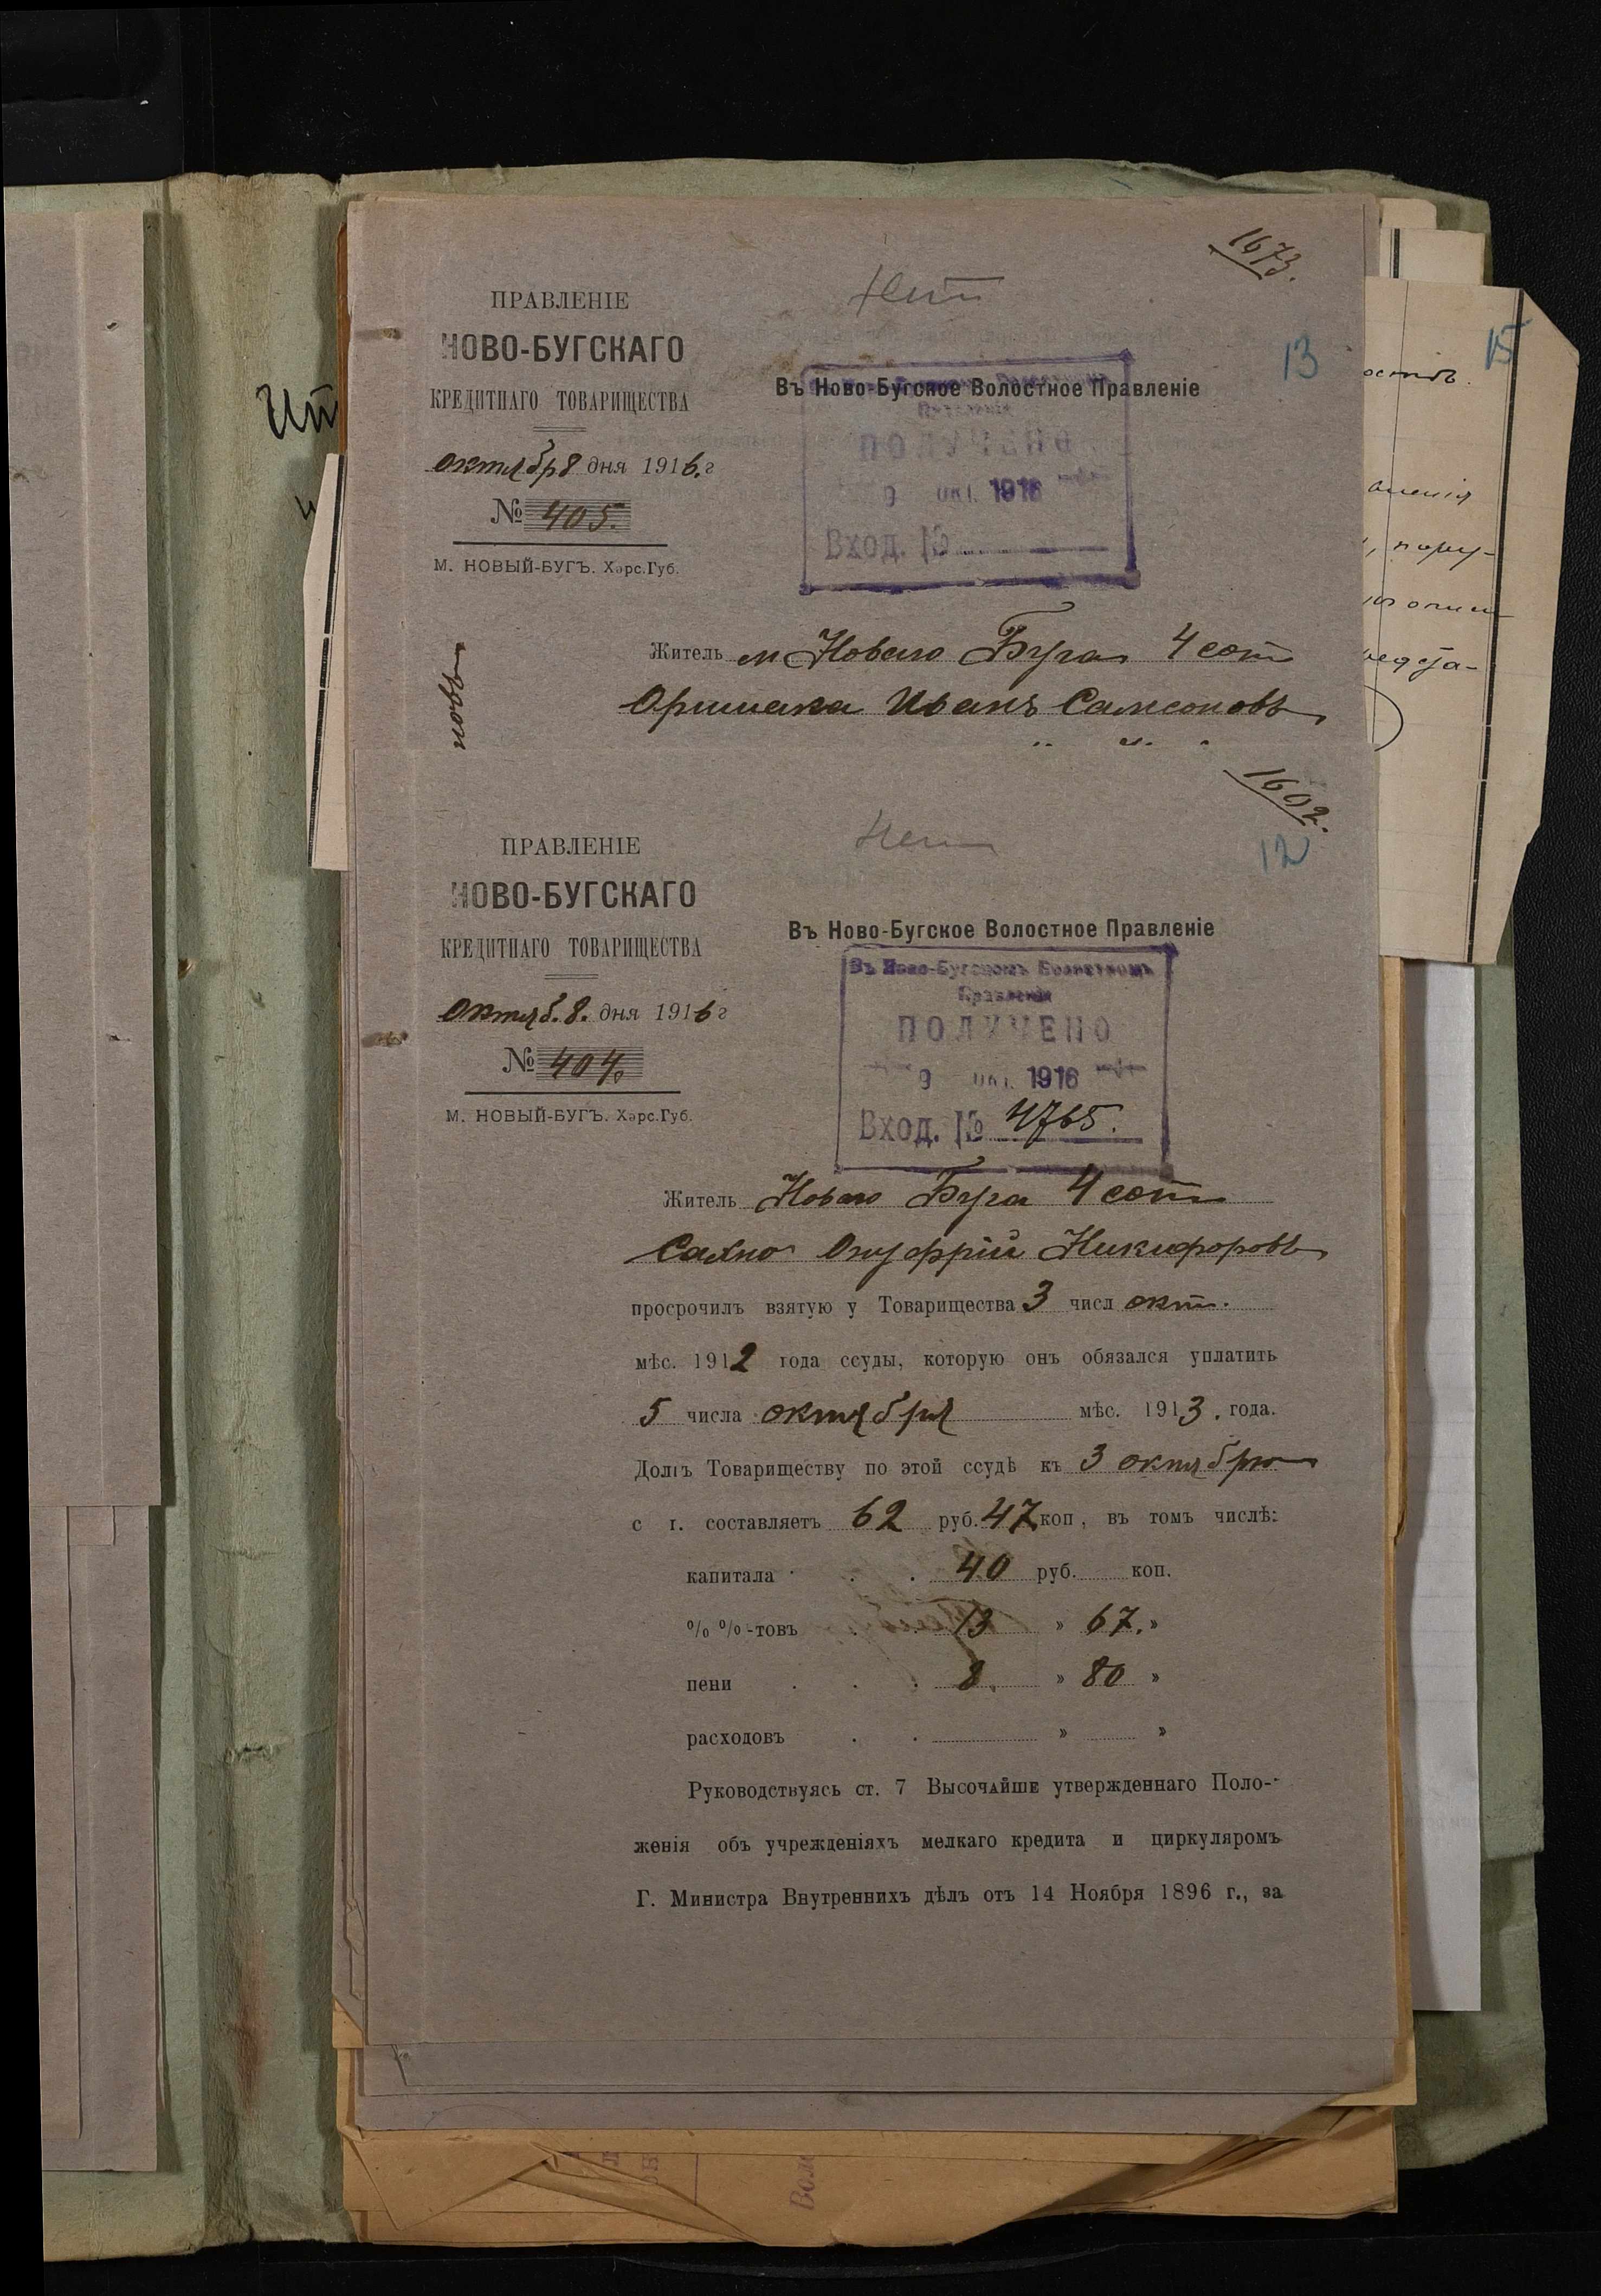 1673.
Нет
13
ПРАВЛЕНІЕ
НОВО-БУГСКАГО
КРЕДИТНАГО ТОВАРИЩЕСТВА
Въ Ново-Бугское Волостное Правленіе
октябр 8 дня 1916.г
№ 405.
М. НОВЫЙ-БУГЪ. Хэрс.Губ.
ПОЛУЧЕНО
9 ОКТ. 1916
Вход. №
Житель м Новаго Буга 4 сот
Иванъ Самсоновъ
1602.
Нет
12
ПРАВЛЕНІЕ
НОВО-БУГСКАГО
КРЕДИТНАГО ТОВАРИЩЕСТВА
Въ Ново-Бугское Волостное Правленіе
Октяб. 8. дня 1916 г
№ 404.
М. НОВЫЙ-БУГЪ. Хэрс.Губ.
Въ Ново-Бугскомъ Волостномъ
Правленіи
ПОЛУЧЕНО
9 ОКТ. 1916
Вход. № 4765.
Житель Новаго Буга 4 сот
Сахно Онуфрій Никифоровъ
просрочилъ взятую у Товарищества 3 числ окт.
мѣс. 1912 года ссуды, которую онъ обязался уплатить
5 числа октября мѣс. 1913. года.
Долгъ Товариществу по этой ссудѣ къ 3 октябрю
с г. составляетъ 62 руб. 47 коп, въ томъ числѣ:
капитала . . . 40 руб. коп.
% %-товъ . . 13 » 67. »
пени . . . 8. » 80 »
расходовъ . . » »
Руководствуясь ст. 7 Высочайше утвержденнаго Поло-
женія объ учрежденіяхъ мелкаго кредита и циркуляромъ
Г. Министра Внутреннихъ дѣлъ отъ 14 Ноября 1896 г., за
15